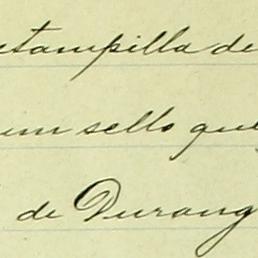 estampilla de
un sello que
de Durang